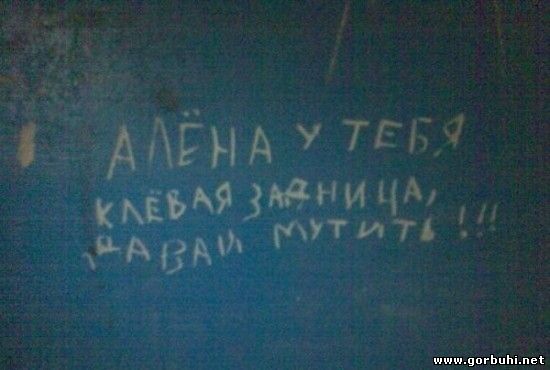 АЛЁНА У ТЕБЯ
КЛЁВАЯ ЗАДНИЦА,
ДАВАЙ МУТИТЬ!!!
www.gorbuhi.net